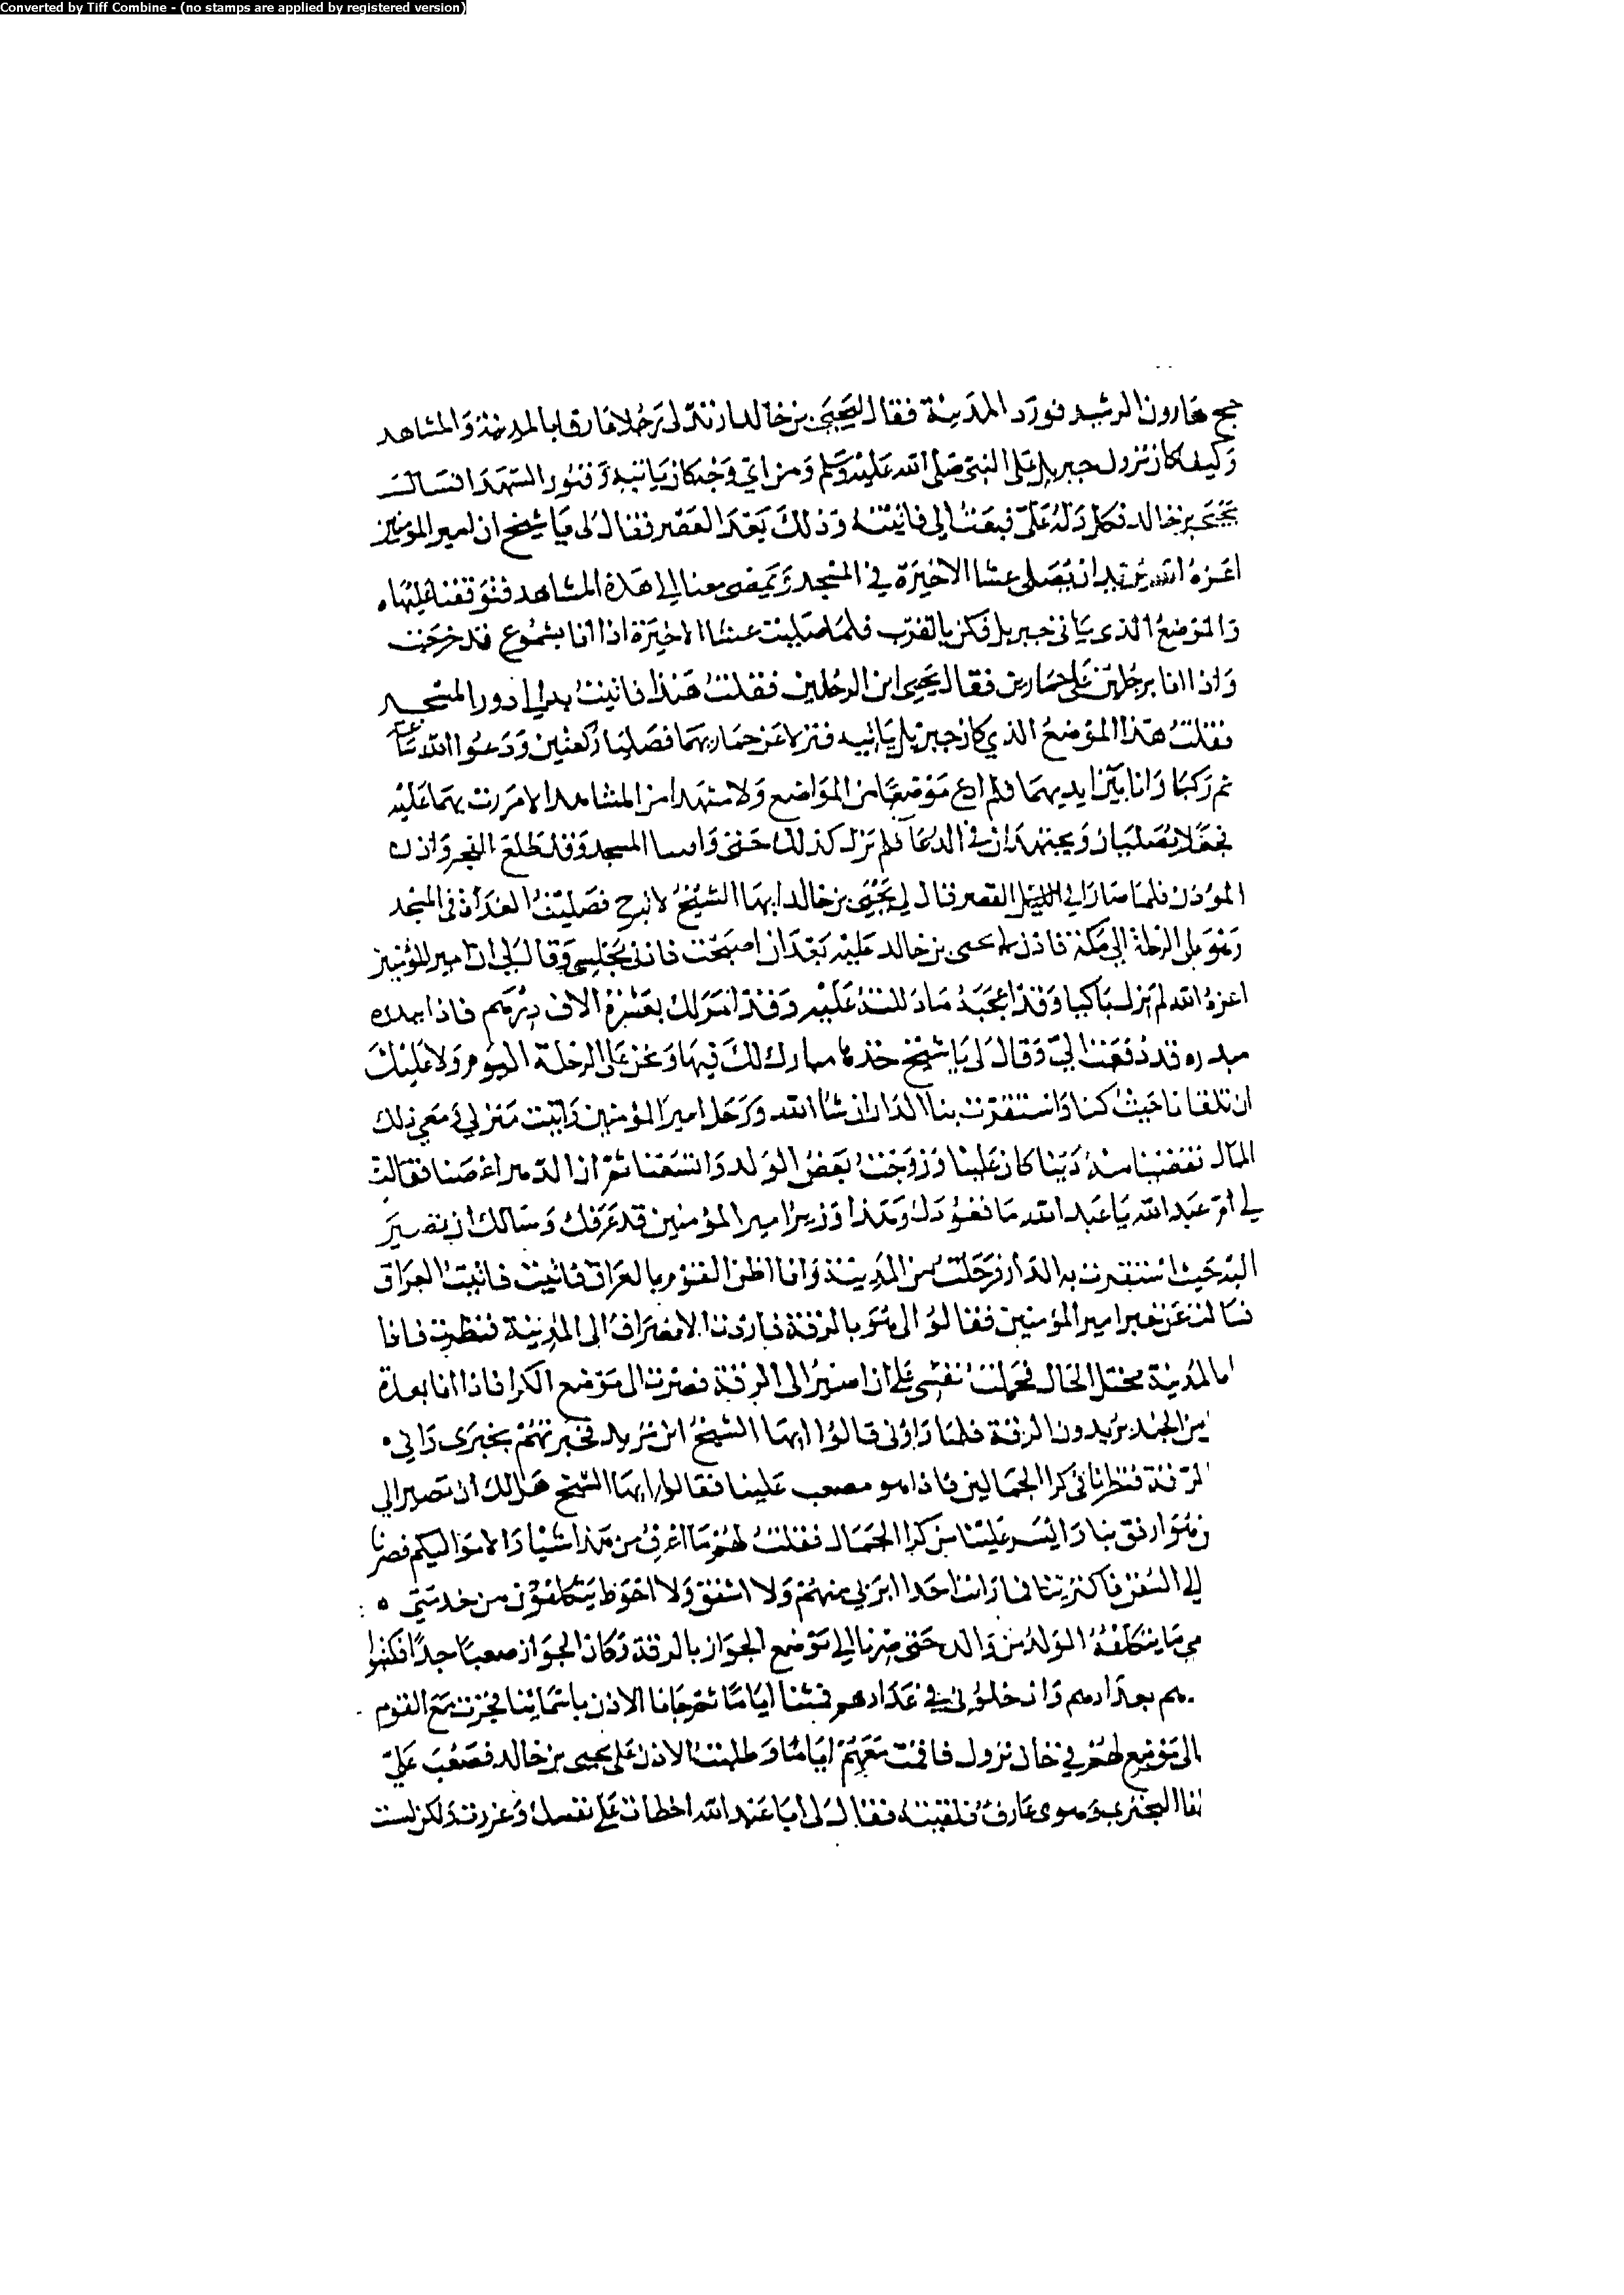 Converted by Tiff Combine - (no stamps are applied by registered version)
حج هارون الرشيد فورد المدينة فقال ليحيى بن خالد ارتد لي رجلا عارفا بالمدينة والمشاهد
وكيف كان نزول جبريل على النبي صلى الله عليه وسلم ومن اي وجه كان ياتيه وقبور الشهدا فسال
يحيى بن خالد فكل دله علي فبعث الي فاتيته وذلك بعد العصر فقال لي يا شيخ ان امير المومنين
اعزه الله يريد ان يصلي عشا الاخيرة في المسجد ويمضي معنا الى هذه المشاهد فتوقفنا عليها
والموضع الذي ياتي جبريل فكن بالقرب فلما صليت عشا الاخيرة اذا انا بشموع قد خرجت
واذا انا برجلين على حمارين فقال يحيى اين الرجل فقلت هنذا فاتيت به الى دور المسجد
فقلت هذا الموضع الذي كان جبريل ياتيه فنزلا عن حماريهما فصليا ركعتين ودعوا الله ساعة
ثم ركبا وانا بين ايديهما فلم ادع موضعا من المواضع ولا مشهدا من المشاهد الا مررت بهما عليه
فجعلا يصليان ويجتهدان في الدعا فلم نزل كذلك حتى وافينا المسجد وقد طلع الفجر واذن
الموذن فلما صارا الى القصر قال لي يحيى بن خالد ايها الشيخ لا تبرح فصليت الغداة في المسجد
وهو على الرحلة الى مكة فاذن لي يحيى بن خالد عليه بعد ان اصبحت فادنى مجلسي وقال لي ان امير المؤمنين
اعزه الله لم يزل باكيا وقد اعجبه ما دللته عليه وقد امر لك بعشرة الاف درهم فاذا بدره
مبدره قد دفعت الي وقال لي يا شيخ خذها مبارك لك فيها ونحن على الرحلة اليوم ولا عليك
ان تلقانا حيث كنا واستقرت بنا الدار ان شا الله ورحل امير المؤمنين واتيت منزلي ومعي ذلك
المال فقضينا منه دينا كان علينا وزوجت بعض الولد واتسعنا ثم ان الدهر اعضنا فقالت
لي ام عبد الله يا عبد الله ما قعودك وهذا وزير امير المؤمنين قد عرفك وسالك ان تصير
اليه حيث استقرت به الدار فرحلت من المدينة وانا اظن القوم بالعراق فاتيت فاتيت العراق
فسالت عن خبر امير المؤمنين فقالوا لي هو بالرقة فاردت الانصراف الى المدينة فنظرت فاذا
بالمدينة مختل الحال فحملت نفسي على ان اصير الى الرقة فصرت الى موضع الكرا فاذا انا بعدة
من الجند يريدون الرقة فلما راوني قالوا ايها الشيخ اين تريد فخبرتهم بخبري واني
الرقة فنظرنا في كرا الجمالين فاذا هو مصعب علينا فقالوا ايها الشيخ هل لك ان تصير الى
هو ارفق بنا وايسر علينا من كرا الجمال فقلت لهم ما اعرف من هذا شيا والامر اليكم فصرنا
الى السفن فاكترينا فما رايت احدا ابر بي منهم ولا اشفق ولا احوط يتكلفون من خدمتي
ما يتكلفه الولد من والده حتى صرنا الى موضع الجواز بالرقة وكان الجواز صعبا جدا فكتبوا
بعدادهم وادخلوني في عدادهم فمكثنا اياما ثم جانا الاذن باسمائنا فجزت مع القوم
الى موضع لهم في خان نزول فاقمت معهم اياما وطلبت الاذن على يحيى بن خالد فصعب علي
البختري وهو بي عارف فلقيته فقال لي ابا عبد الله اخطات على نفسك وغررت ولكن لست